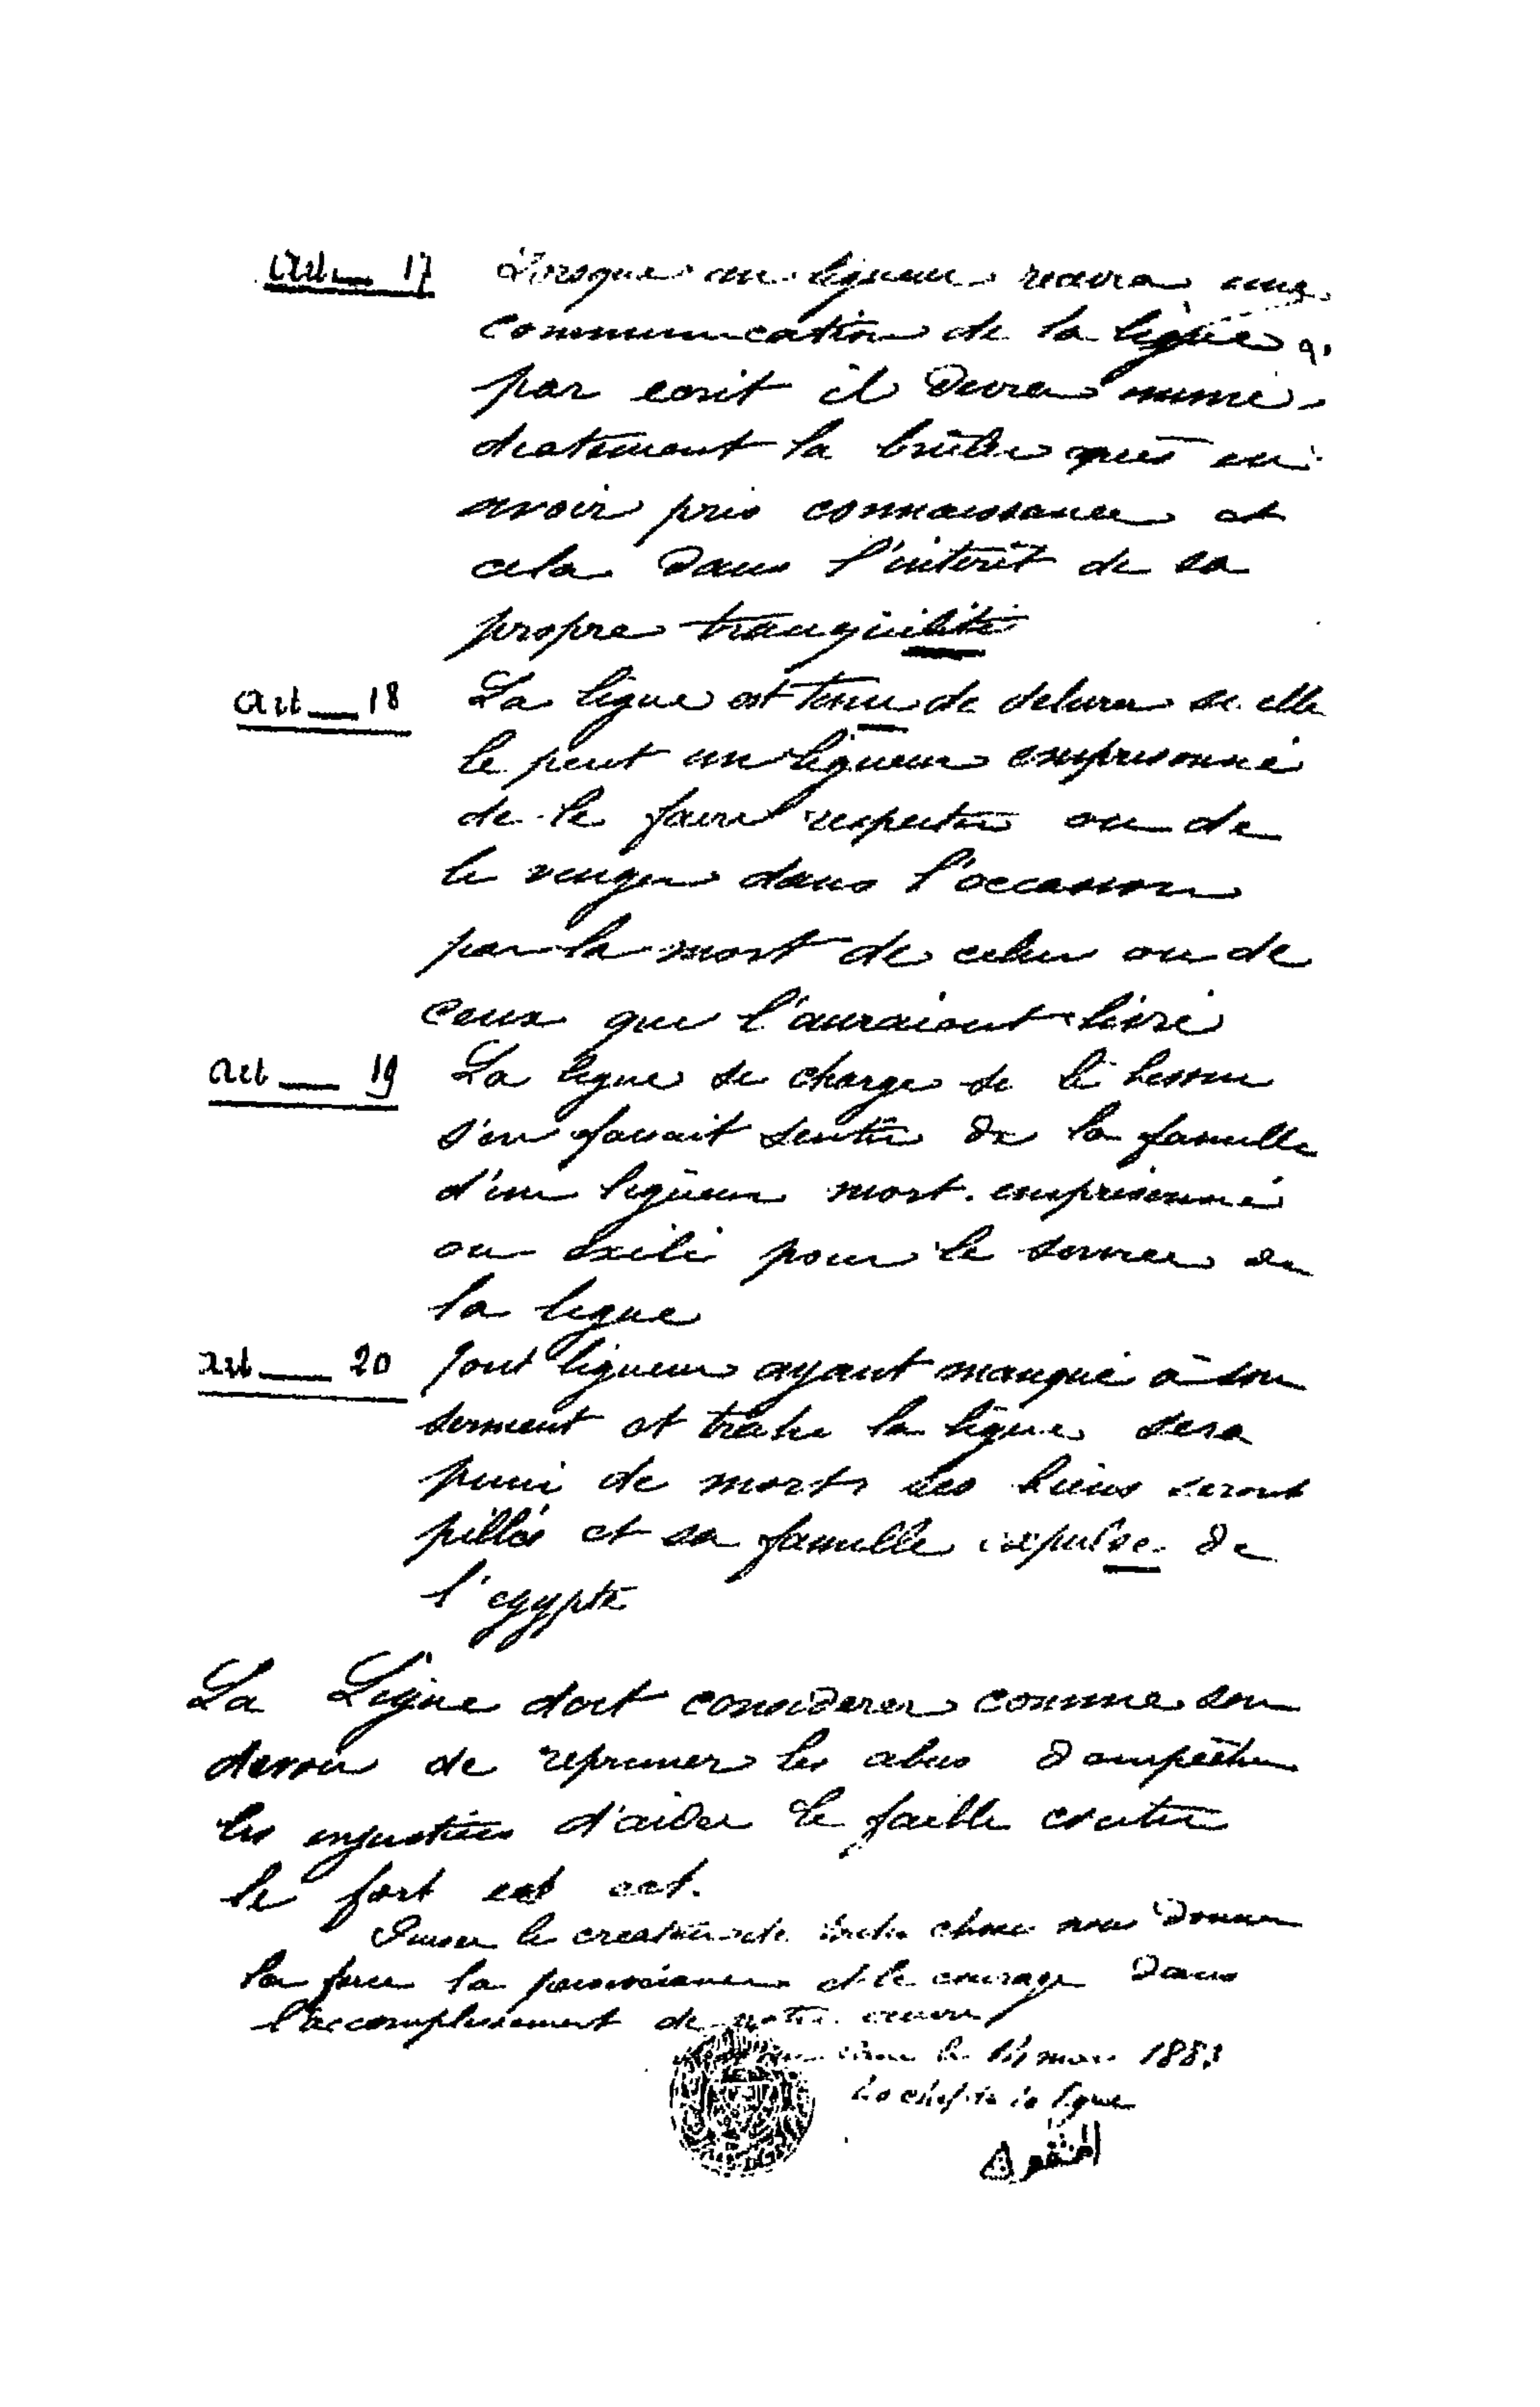 Art — 17 Lorsque un ligueur recevra une
communication de la ligue
par ecrit il devra imme-
diatement la brûler après en
avoir pris connaissance et
cela dans l'interêt de sa
propre tranquilité
Art — 18 La ligue est tenu de delivrer si elle
le peut un ligueur emprisonné
de le faire respecter ou de
le venger dans l'occasion
par la mort de celui ou de
ceux qui l'auraient livré
Art — 19 La ligue se charge si le besoin
s'en faisait sentir de la famille
d'un ligueur mort. emprisonné
ou exilé pour le service de
la ligue
Art — 20 Tout ligueur ayant manqué à son
serment et trahi la ligue sera
puni de mort, ses biens seront
pillés et sa famille expulse de
l'egypte
La Ligue doit considerer comme son
devoir de reprimer les abus d'empêcher
les injustices d'aider le faible contre
le fort ect ect.
Puisse le createur de toute chose nous donner
la force la et le courage dans
l'accomplissement de notre œuvre
le mars 1883
Le chef de la ligue